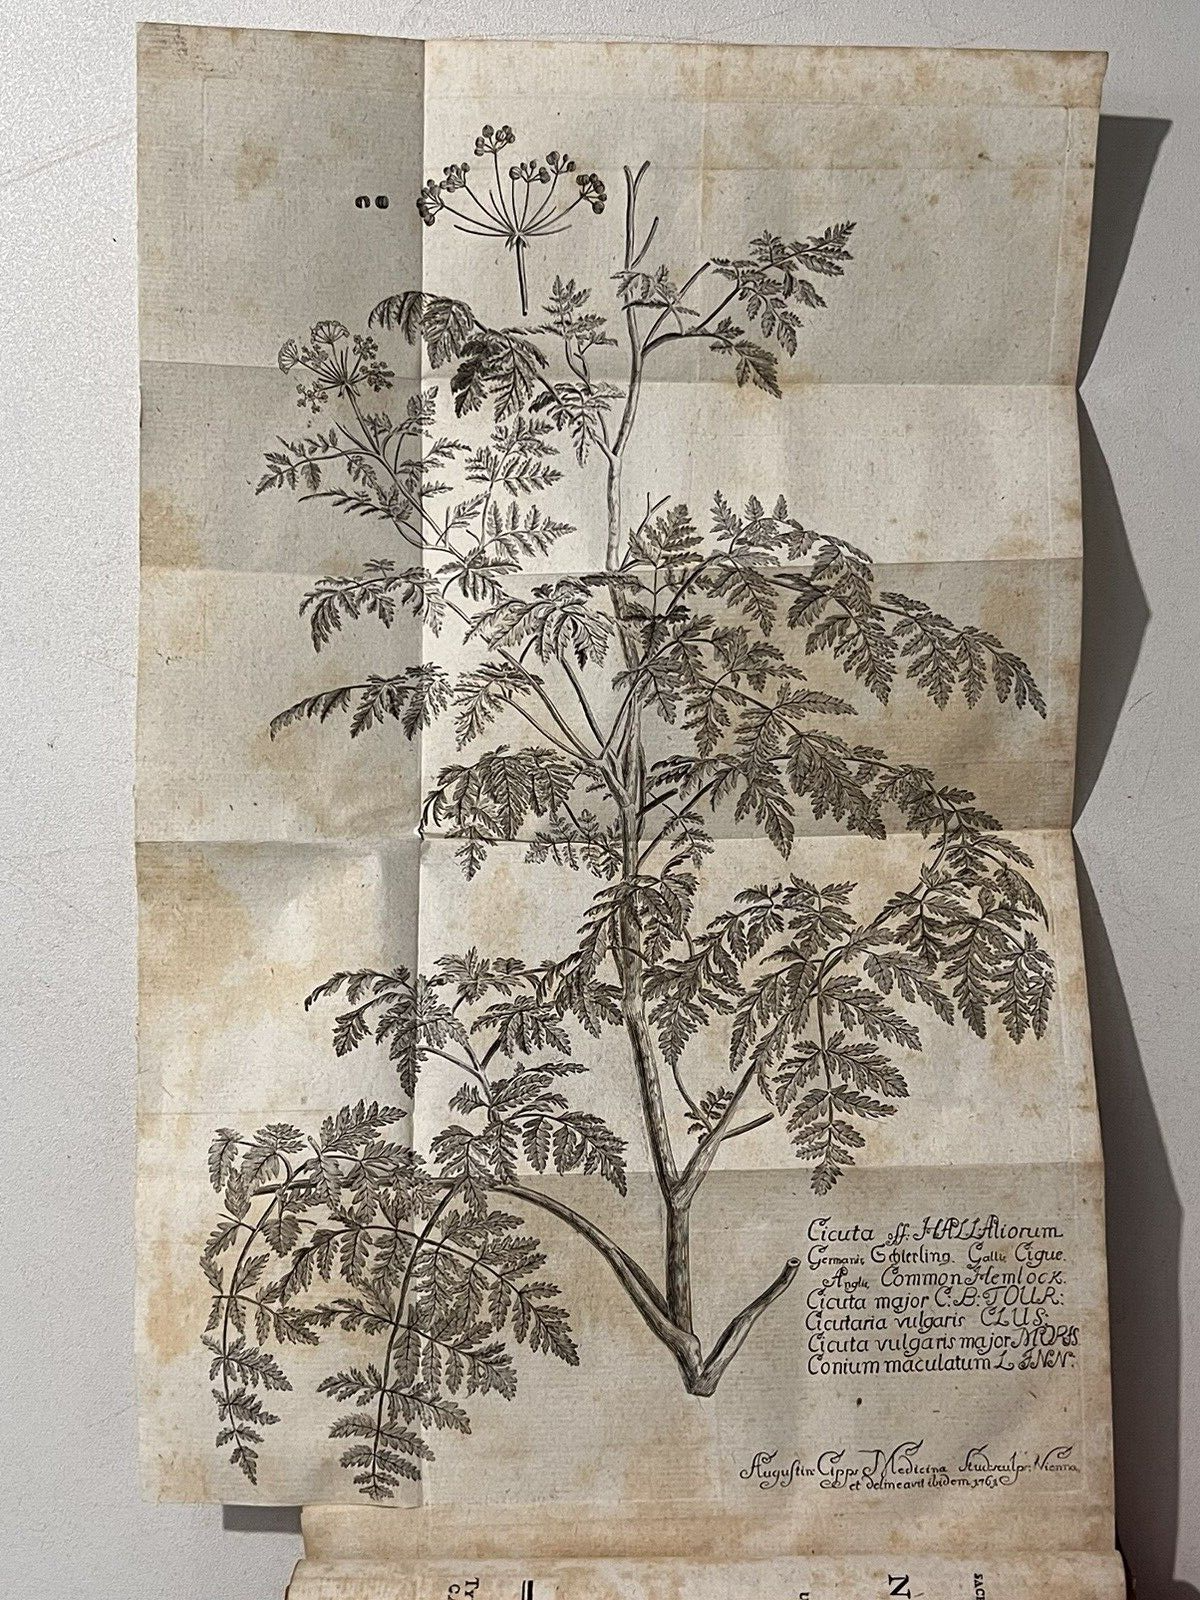 Cicuta off: HALLAliorum
Germanis Schierling. Gallis Cigue.
Anglis Common Hemlock.
Cicuta major C: B: TOUR:
Cicutaria vulgaris CLUS:
Cicuta vulgaris major MORIS
Conium maculatum LINN:
Augustin Cipps Medicina Stud: sculps: Vienna
et delineavit ibidem 1761
N
SACR